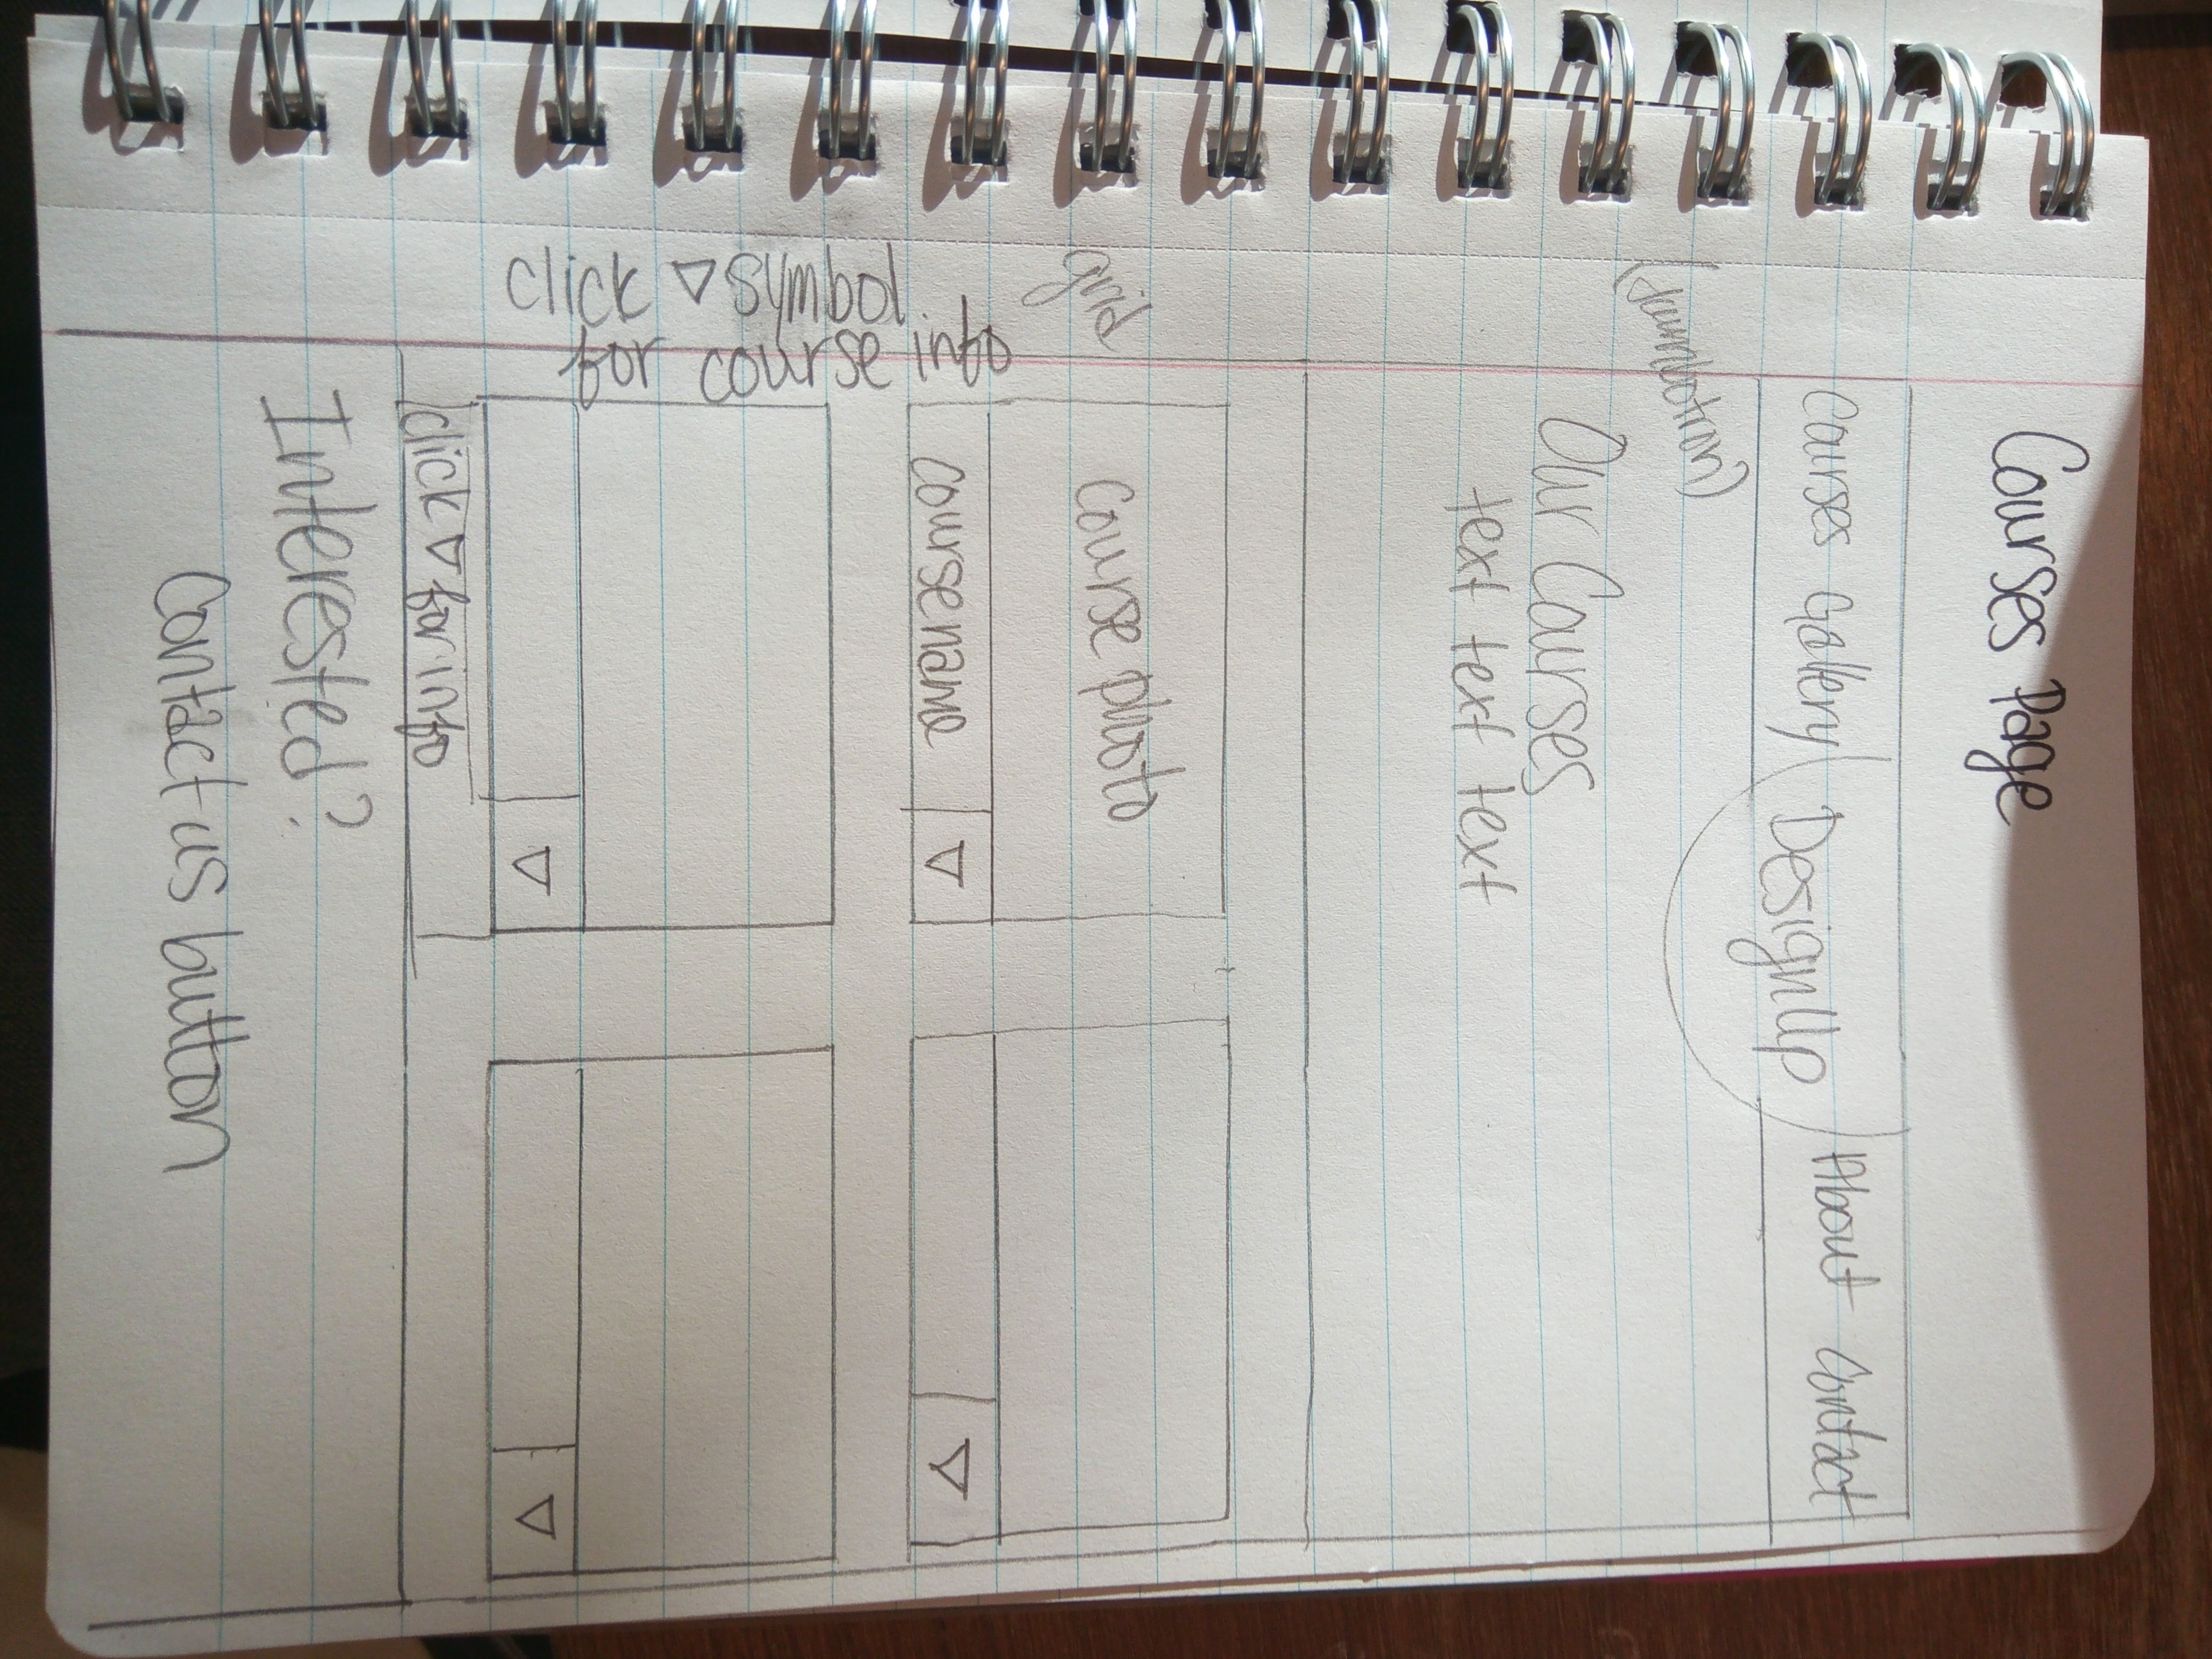 Courses Page
Courses Gallery DesignUp About Contact
(jumbotron)
Our Courses
text text text text
grid
Course photo
Coursename ▽
▽
click ▽ symbol
for course info
▽
▽
click ▽ for info
Interested?
Contact us button